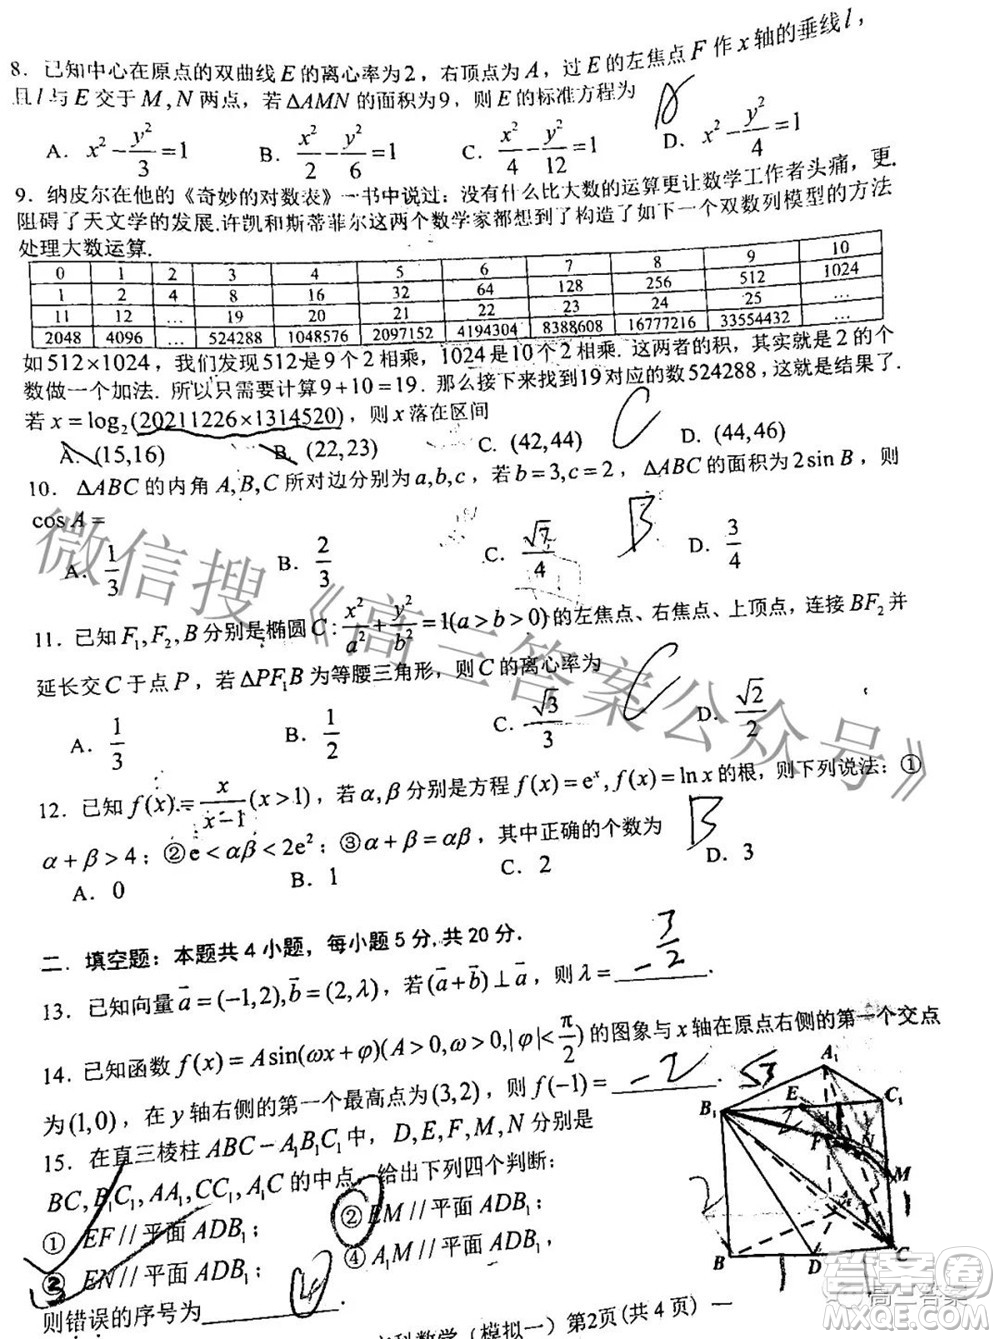 8. 已知中心在原点的双曲线 E 的离心率为 2，右顶点为 A，过 E 的左焦点 F 作 x 轴的垂线 l，
且 l 与 E 交于 M, N 两点，若 ΔAMN 的面积为 9，则 E 的标准方程为 A
A. x²-y²/3=1 B. x²/2-y²/6=1 C. x²/4-y²/12=1 D. x²-y²/4=1
9. 纳皮尔在他的《奇妙的对数表》一书中说过：没有什么比大数的运算更让数学工作者头痛，更
阻碍了天文学的发展.许凯和斯蒂菲尔这两个数学家都想到了构造了如下一个双数列模型的方法
处理大数运算.
0 1 2 3 4 5 6 7 8 9 10
1 2 4 8 16 32 64 128 256 512 1024
11 12 … 19 20 21 22 23 24 25 …
2048 4096 … 524288 1048576 2097152 4194304 8388608 16777216 33554432 …
如 512×1024，我们发现 512 是 9 个 2 相乘，1024 是 10 个 2 相乘. 这两者的积，其实就是 2 的个
数做一个加法. 所以只需要计算 9+10=19. 那么接下来找到 19 对应的数 524288，这就是结果了.
若 x=log₂(20211226×1314520)，则 x 落在区间 C
A. (15,16) B. (22,23) C. (42,44) D. (44,46)
10. ΔABC 的内角 A,B,C 所对边分别为 a,b,c，若 b=3,c=2，ΔABC 的面积为 2sin B，则
cos A= B
A. 1/3 B. 2/3 C. √7/4 D. 3/4
11. 已知 F₁,F₂,B 分别是椭圆 C: x²/a²+y²/b²=1(a>b>0) 的左焦点、右焦点、上顶点，连接 BF₂ 并
延长交 C 于点 P，若 ΔPF₁B 为等腰三角形，则 C 的离心率为 C
A. 1/3 B. 1/2 C. √3/3 D. √2/2
12. 已知 f(x)=x/(x-1)(x>1)，若 α,β 分别是方程 f(x)=eˣ,f(x)=ln x 的根，则下列说法：①
α+β>4；②e<αβ<2e²；③α+β=αβ，其中正确的个数为 B
A. 0 B. 1 C. 2 D. 3
二. 填空题：本题共 4 小题，每小题 5 分,共 20 分.
13. 已知向量 a=(-1,2),b=(2,λ)，若 (a+b)⊥a，则 λ=______. -3/2
14. 已知函数 f(x)=Asin(ωx+φ)(A>0,ω>0,|φ|<π/2) 的图象与 x 轴在原点右侧的第一个交点
为(1,0)，在 y 轴右侧的第一个最高点为(3,2)，则 f(-1)=______. -2
15. 在直三棱柱 ABC-A₁B₁C₁ 中，D,E,F,M,N 分别是
BC,B₁C₁,AA₁,CC₁,A₁C 的中点，给出下列四个判断：
① EF//平面 ADB₁； ② EM//平面 ADB₁；
③ EN//平面 ADB₁； ④ A₁M//平面 ADB₁，
则错误的序号为______.
A₁ B₁ C₁ E F N M A B D C
文科数学（模拟一）第2页(共 4 页)
微信搜《高三答案公众号》
答案圈
高三答案